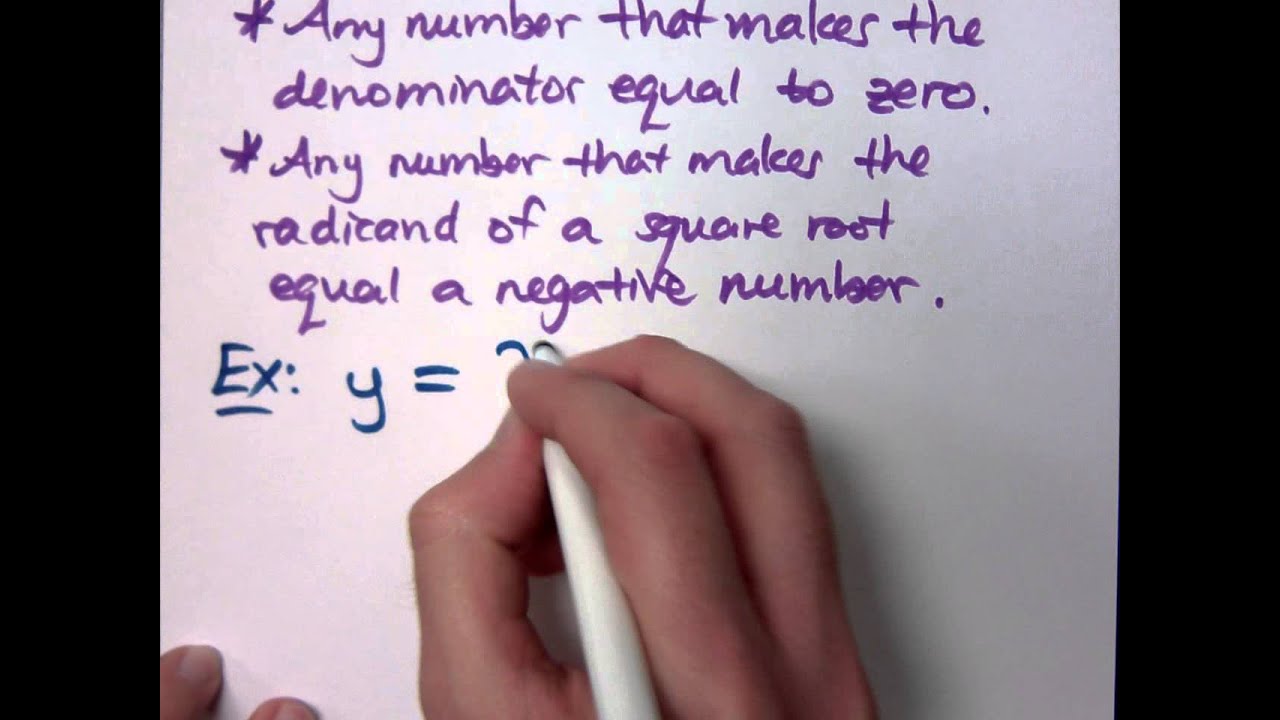 * Any number that makes the
denominator equal to zero.
* Any number that makes the
radicand of a square root
equal a negative number.
Ex: y =